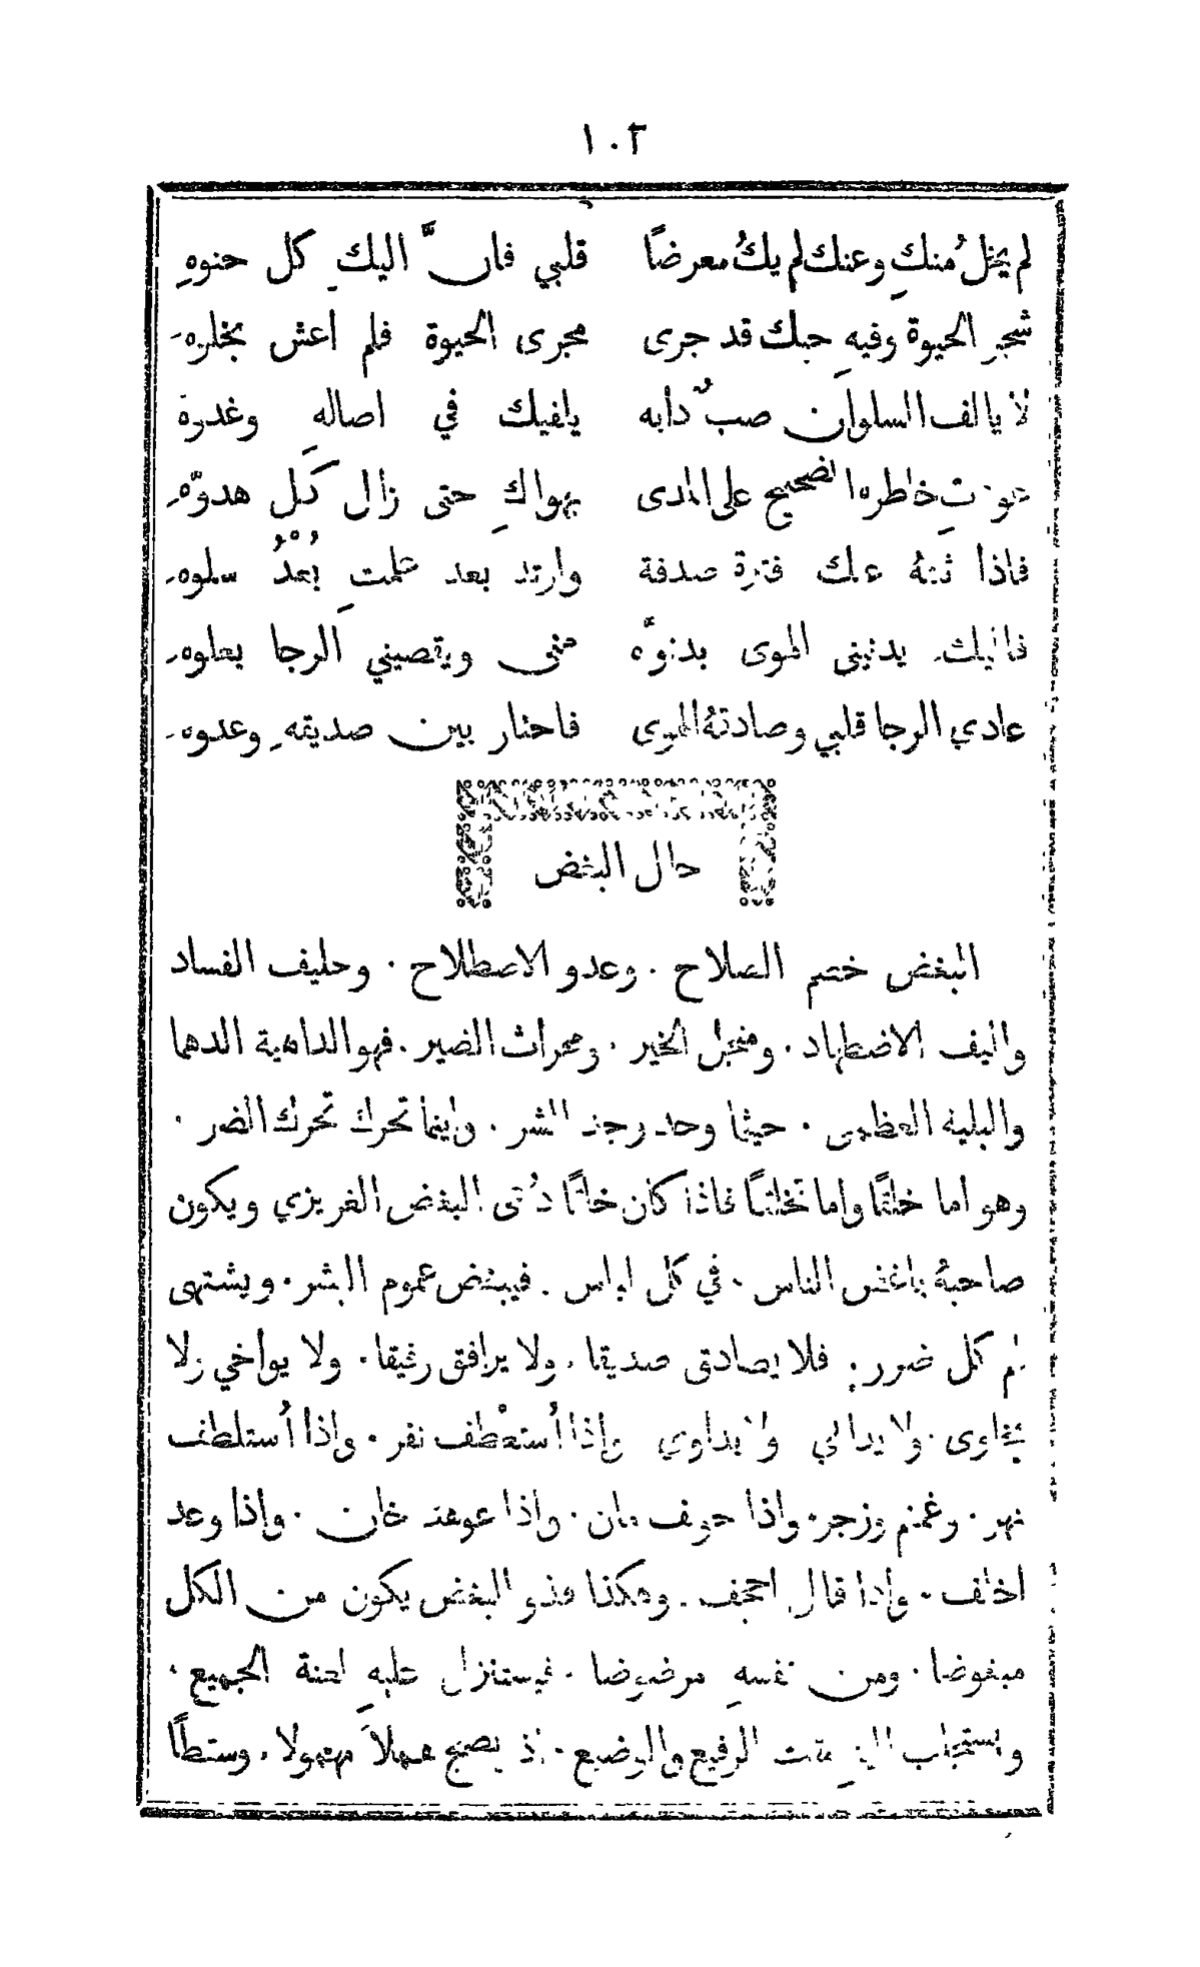 ١٠٢
لم يخلُ منكِ وعنك لم يكُ معرضًا قلبي فانَّ اليكِ كل حنوهِ
شجر الحيوة وفيهِ حبك قد جرى مجرى الحيوة فلم اعش بخلوه
لا يالف السلوان صبٌ دأبه يلفيك في اصالهِ وغدوه
عوذتِ خاطره الصحيح على المدى بهواكِ حتى زال كل هدوّه
فاذا ثنته عنك فترة صدفة وارتد بعد علمتِ بُعْدُ سلوه
فاليك يدنيني الهوى بدنوّه مني ويقصيني الرجا بعلوه
عادي الرجا قلبي وصادقهُ الهوى فاحتار بين صديقهِ وعدوه
حال البغض
البغض خصم الصلاح . وعدو الاصطلاح . وحليف الفساد
واليف الاضطهاد . ومنجل الخير . ومحراث الضير . فهو الداهية الدهما
والبلية العظمى . حيثما وجد وجد الشر . واينما تحرك تحرك الضر .
وهو اما خلقًا واما تخلقًا فاذا كان خلقًا دُعى البغض الغريزي ويكون
صاحبهُ باغض الناس . في كل لباس . فيبغض عموم البشر . ويشتهى
لهم كل ضرر . فلا يصادق صديقا . ولا يرافق رفيقا . ولا يواخي ولا
يخاوى . ولا يدالي ولا يداوي واذا أستعْطف نفر . واذا أستلطف
نهر . وغمنم وزجر . واذا حولف مان . واذا عوهد خان . واذا وعد
اخلف . واذا قال احجف . وهكذا فذو البغض يكون من الكل
مبغوضا . ومن نفسهِ مرضوضا . فيستنزل عليهِ لعنة الجميع .
ويستجلب اليهِ مقت الرفيع والوضيع . اذ يصبح هملاً مهمولا . وسقطًا